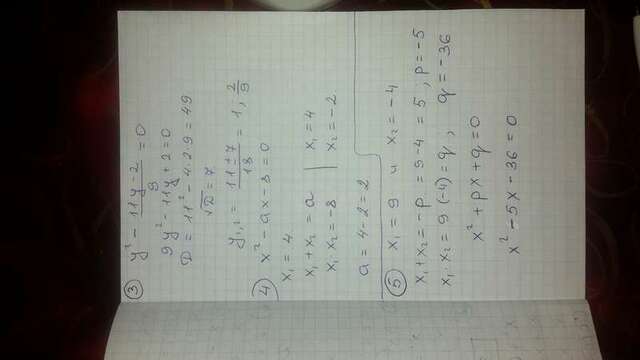 ③ y² - (11y - 2)/9 = 0
9y² - 11y + 2 = 0
D = 11² - 4·2·9 = 49
√D = 7
y₁,₂ = (11 ± 7)/18 = 1, 2/9
④ x² - ax - 8 = 0
x₁ = 4
x₁ + x₂ = a | x₁ = 4
x₁·x₂ = -8 | x₂ = -2
a = 4 - 2 = 2
⑤ x₁ = 9 и x₂ = -4
x₁ + x₂ = -p = 9 - 4 = 5, p = -5
x₁·x₂ = 9(-4) = q, q = -36
x² + px + q = 0
x² - 5x - 36 = 0